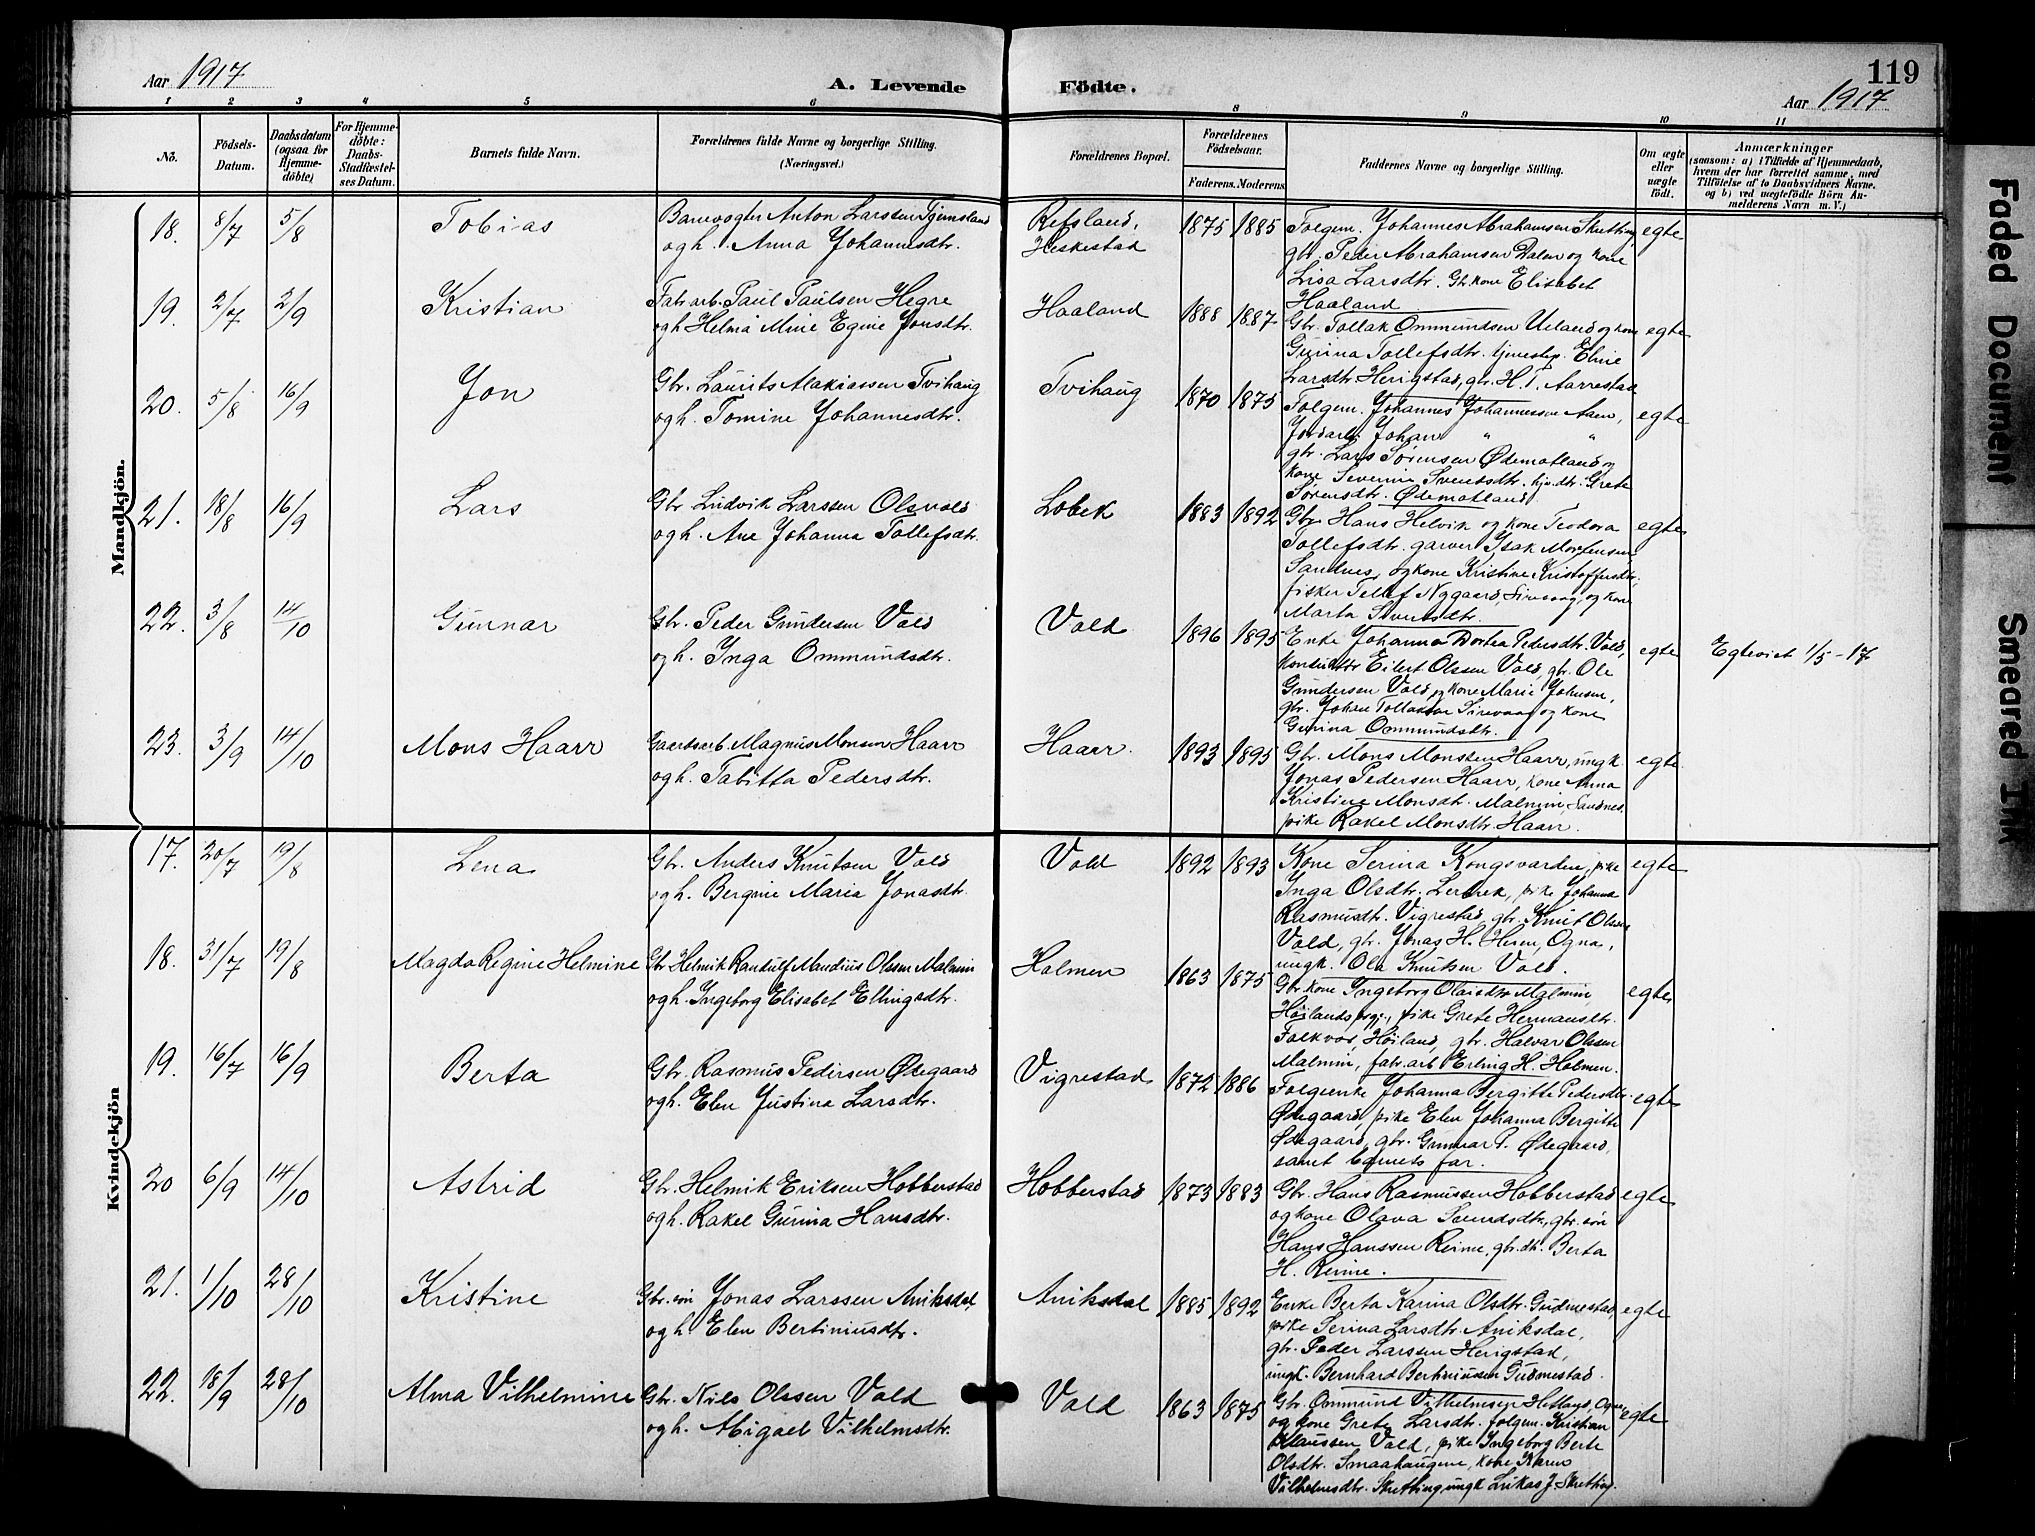 Aar 1917
A. Levende
Födte.
119
Aar 1917
1 2 3 4 5 6 8 9 10 11
No.
Födsels-
Datum.
Daabsdatum
(ogsaa for
Hjemme-
döbte)
For Hjemme-
döbte:
Daabs-
Stadfæstel-
ses Datum.
Barnets fulde Navn.
Forældrenes fulde Navne og borgerlige Stilling.
(Næringsvei.)
Forældrenes Bopæl.
Forældrenes
Födselsaar.
Faderens. Moderens
Faddernes Navne og borgerlige Stilling.
Om ægte
eller
uægte
födt.
Anmærkninger
(saasom: a) i Tilfælde af Hjemmedaab,
hvem der har forrettet samme, med
Tilföielse af to Daabsvidners Navne.
og b) ved uægtefödte Börn An-
melderens Navn m. V.)
Mandkjön.
18. 8/7 5/8 Tobias
Banevogter Anton Larssen Tjemsland
og h. Anna Johannesdtr.
Refsland,
Heskestad
1875 1885
Folgem. Johannes Abrahamsen Skretting,
gbr. Peder Abrahamsen Dalen og kone
Lisa Larsdtr. Gb. kone Elisabet
Haaland
egte
19. 2/7 2/9 Kristian
Fabr.arb. Paul Paulsen Hegre
og h. Helma Mine Egine Jonsdtr.
Haaland
1888 1887
Gbr. Tollak Ommundsen Ueland og kone
Gurina Tollefsdtr. tjenestep. Eline
Larsdtr Herigstad, gbr. H. T. Aarrestad
egte
20. 5/8 16/9 Jon
Gbr. Laurits Malakiassen Tvihaug
og h. Tomine Johannesdtr.
Tvihaug
1870 1875
Folgem. Johannes Johannessen Aaen,
Jordarb. Johan " "
gbr. Lars Sørensen Ødemotland og
kone Severine Sventsdtr. hjv.dtr. Grete
Sørensdtr. Ødemotland.
egte
21. 18/8 16/9 Lars
Gbr Ludvik Larssen Olsvold
og h. Ane Johanna Tollefsdtr.
Lobek
1883 1892
Gbr Hans Helvik og kone Teodora
Tollefsdtr. garver Isak Mortensen
Sandnes, og kone Kristine Kristoffersdtr,
fisker Tellef Nygaard, Sirevaag, og kone
Marta Sivertsdtr.
egte
22. 3/8 14/10 Gunnar
Gbr. Peder Gundersen Vold
og h. Inga Ommundsdtr.
Vold
1896 1895
Enke Johanna Dortea Pedersdtr. Vold,
konduktør Eilert Olssen Vold, gbr. Ole
Gundersen Vold, og kone Marie Johnsen,
gbr. Johan Tollaksen Sirevaag og kone
Gurina Ommundsdtr.
egte
Egteviet 1/5-17
23. 3/9 14/10 Mons Haarr
Gaardsarb. Magnus Monsen Haarr
og h. Tabitta Pedersdtr.
Haarr.
1893 1895
Gbr. Mons Monssen Haarr, ungk.
Jonas Pedersen Haarr, kone Anna
Kristine Monsdtr. Malmin, Sandnes.
pike Rakel Monsdtr. Haarr.
egte.
Kvindekjön
17. 20/7 19/8 Lena
Gbr. Anders Knutsen Vold
og h. Bergine Maria Jonasdtr.
Vold
1892 1893
Kone Serina Kongsvarden, pike
Inga Olsdtr. Lerbrek, pike Johanna
Rasmusdtr. Vigrestad, gbr. Knut Olsen
Vold, gbr. Jonas H. Hesen, Ogna,
ungk. Ola Knutsen Vold.
egte
18. 31/7 19/8 Magda Regine Helmine
Gbr Helmik Randulf Mandius Olssen Malmin
og h. Ingeborg Elisabet Ellingsdtr.
Holmen
1863 1875
Gbr. kone Ingeborg Olaisdtr Malmin,
Høilands prgj., pike Grete Hermansdtr.
Folkvor, Høiland, gbr. Halvar Olssen
Malmin, fabr. arb. Erling H. Holmen.
egte
19. 16/7 16/9 Berta
Gbr. Rasmus Pedersen Ødegaard
og h. Elen Justina Larsdtr.
Vigrestad
1872 1886
Folgeenke Johanna Bergitte Pedersdtr.
Ødegaard, pike Elen Johanna Bergitte
Ødegaard, gbr. Gunnar P. Ødegaard,
samt barnets far.
egte
20 6/9 14/10 Astrid
Gbr. Helmik Eriksen Hobberstad
og h. Rakel Gurina Hansdtr.
Hobberstad
1873 1883
Gbr. Hans Rasmussen Hobberstad
og kone Olava Svendsdtr, gbr. søn
Hans Hanssen Reime, gbr. dtr. Berta
H. Reime.
egte
21. 1/10 28/10 Kristine
Gbr. søn Jonas Larssen Aniksdal
og h. Elen Bertiniusdtr.
Aniksdal
1885 1892
Enke Berta Karina Olsdtr. Gudmestad,
pike Serina Larsdtr. Aniksdal,
gbr. Peder Larssen Herigstad,
ungk. Bernhard Bertiniussen Gudmestad.
egte
22. 18/9 28/10 Alma Vilhelmine
Gbr. Nils Olssen Vold
og h. Abigael Vilhelmsdtr.
Vold
1863 1875
Gbr. Ommund Vilhelmsen Hetland, Ogna,
og kone Grete Larsdtr. folgem. Kristian
Klaussen Vold, pike Ingeborg Berte
Olsdtr. Smaahaugene, kone Karen
Vilhelmsdtr. Skretting ungk Lukas J. Skretting.
egte
Faded Document
Smeared Ink